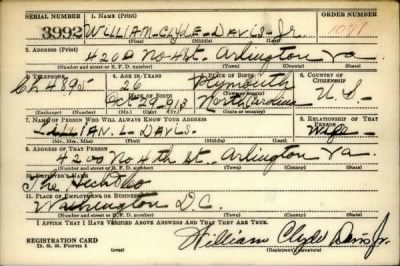 SERIAL NUMBER 1. NAME (Print) ORDER NUMBER
3992 WILLIAM-CLYDE-DAVIS-Jr.
(First) (Middle) (Last)
2. ADDRESS (Print)
4200 No 4 St. Arlington Va.
(Number and street or R. F. D. number) (Town) (County) (State)
3. TELEPHONE 4. AGE IN YEARS 5. PLACE OF BIRTH 6. COUNTRY OF CITIZENSHIP
Ch 4895 26 Plymouth
DATE OF BIRTH (Town or county)
Oct-29-913 North Carolina U.S-
(Exchange) (Number) (Mo.) (Day) (Yr.) (State or country)
7. NAME OF PERSON WHO WILL ALWAYS KNOW YOUR ADDRESS 8. RELATIONSHIP OF THAT PERSON
LILLIAN. L- DAVIS. Wife
(Mr., Mrs., Miss) (First) (Middle) (Last)
9. ADDRESS OF THAT PERSON
4200 No 4th St. Arlington Va.
(Number and street or R. F. D. number) (Town) (County) (State)
10. EMPLOYER'S NAME
The Hecht Co
11. PLACE OF EMPLOYMENT OR BUSINESS
Washington D.C.
(Number and street or R. F. D. number) (Town) (County) (State)
I AFFIRM THAT I HAVE VERIFIED ABOVE ANSWERS AND THAT THEY ARE TRUE.
REGISTRATION CARD
D. S. S. Form 1
William Clyde Davis Jr.
(Registrant's signature)